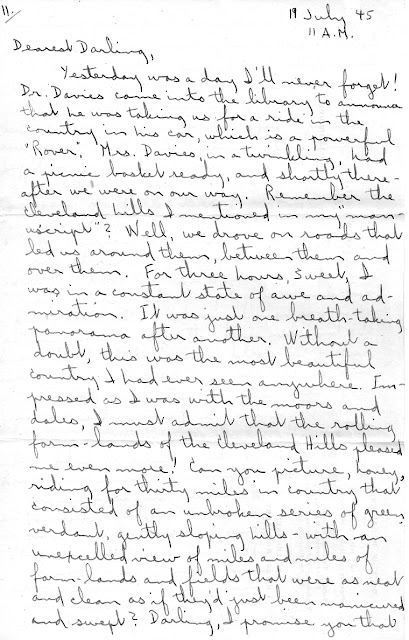 11.
19 July 45
11 A.M.
Dearest Darling,
Yesterday was a day I'll never forget!
Dr. Davies came into the library to announce
that he was taking us for a ride in the
country in his car, which is a powerful
"Rover". Mrs. Davies, in a twinkling, had
a picnic basket ready, and shortly there-
after we were on our way. Remember the
Cleveland hills I mentioned in my "man-
uscript"? Well, we drove on roads that
led us around them, between them and
over them. For three hours, Sweet, I
was in a constant state of awe and ad-
miration. It was just one breath-taking
panorama after another. Without a
doubt, this was the most beautiful
country I had ever seen anywhere. Im-
pressed as I was with the moors and
dales, I must admit that the rolling
farm-lands of the Cleveland Hills pleased
me even more! Can you picture, honey,
riding for thirty miles in country that
consisted of an unbroken series of green,
verdant, gently sloping hills - with an
unexcelled view of miles and miles of
farm-lands and fields that were as neat
and clean as if they'd just been manicured
and swept? Darling, I promise you that